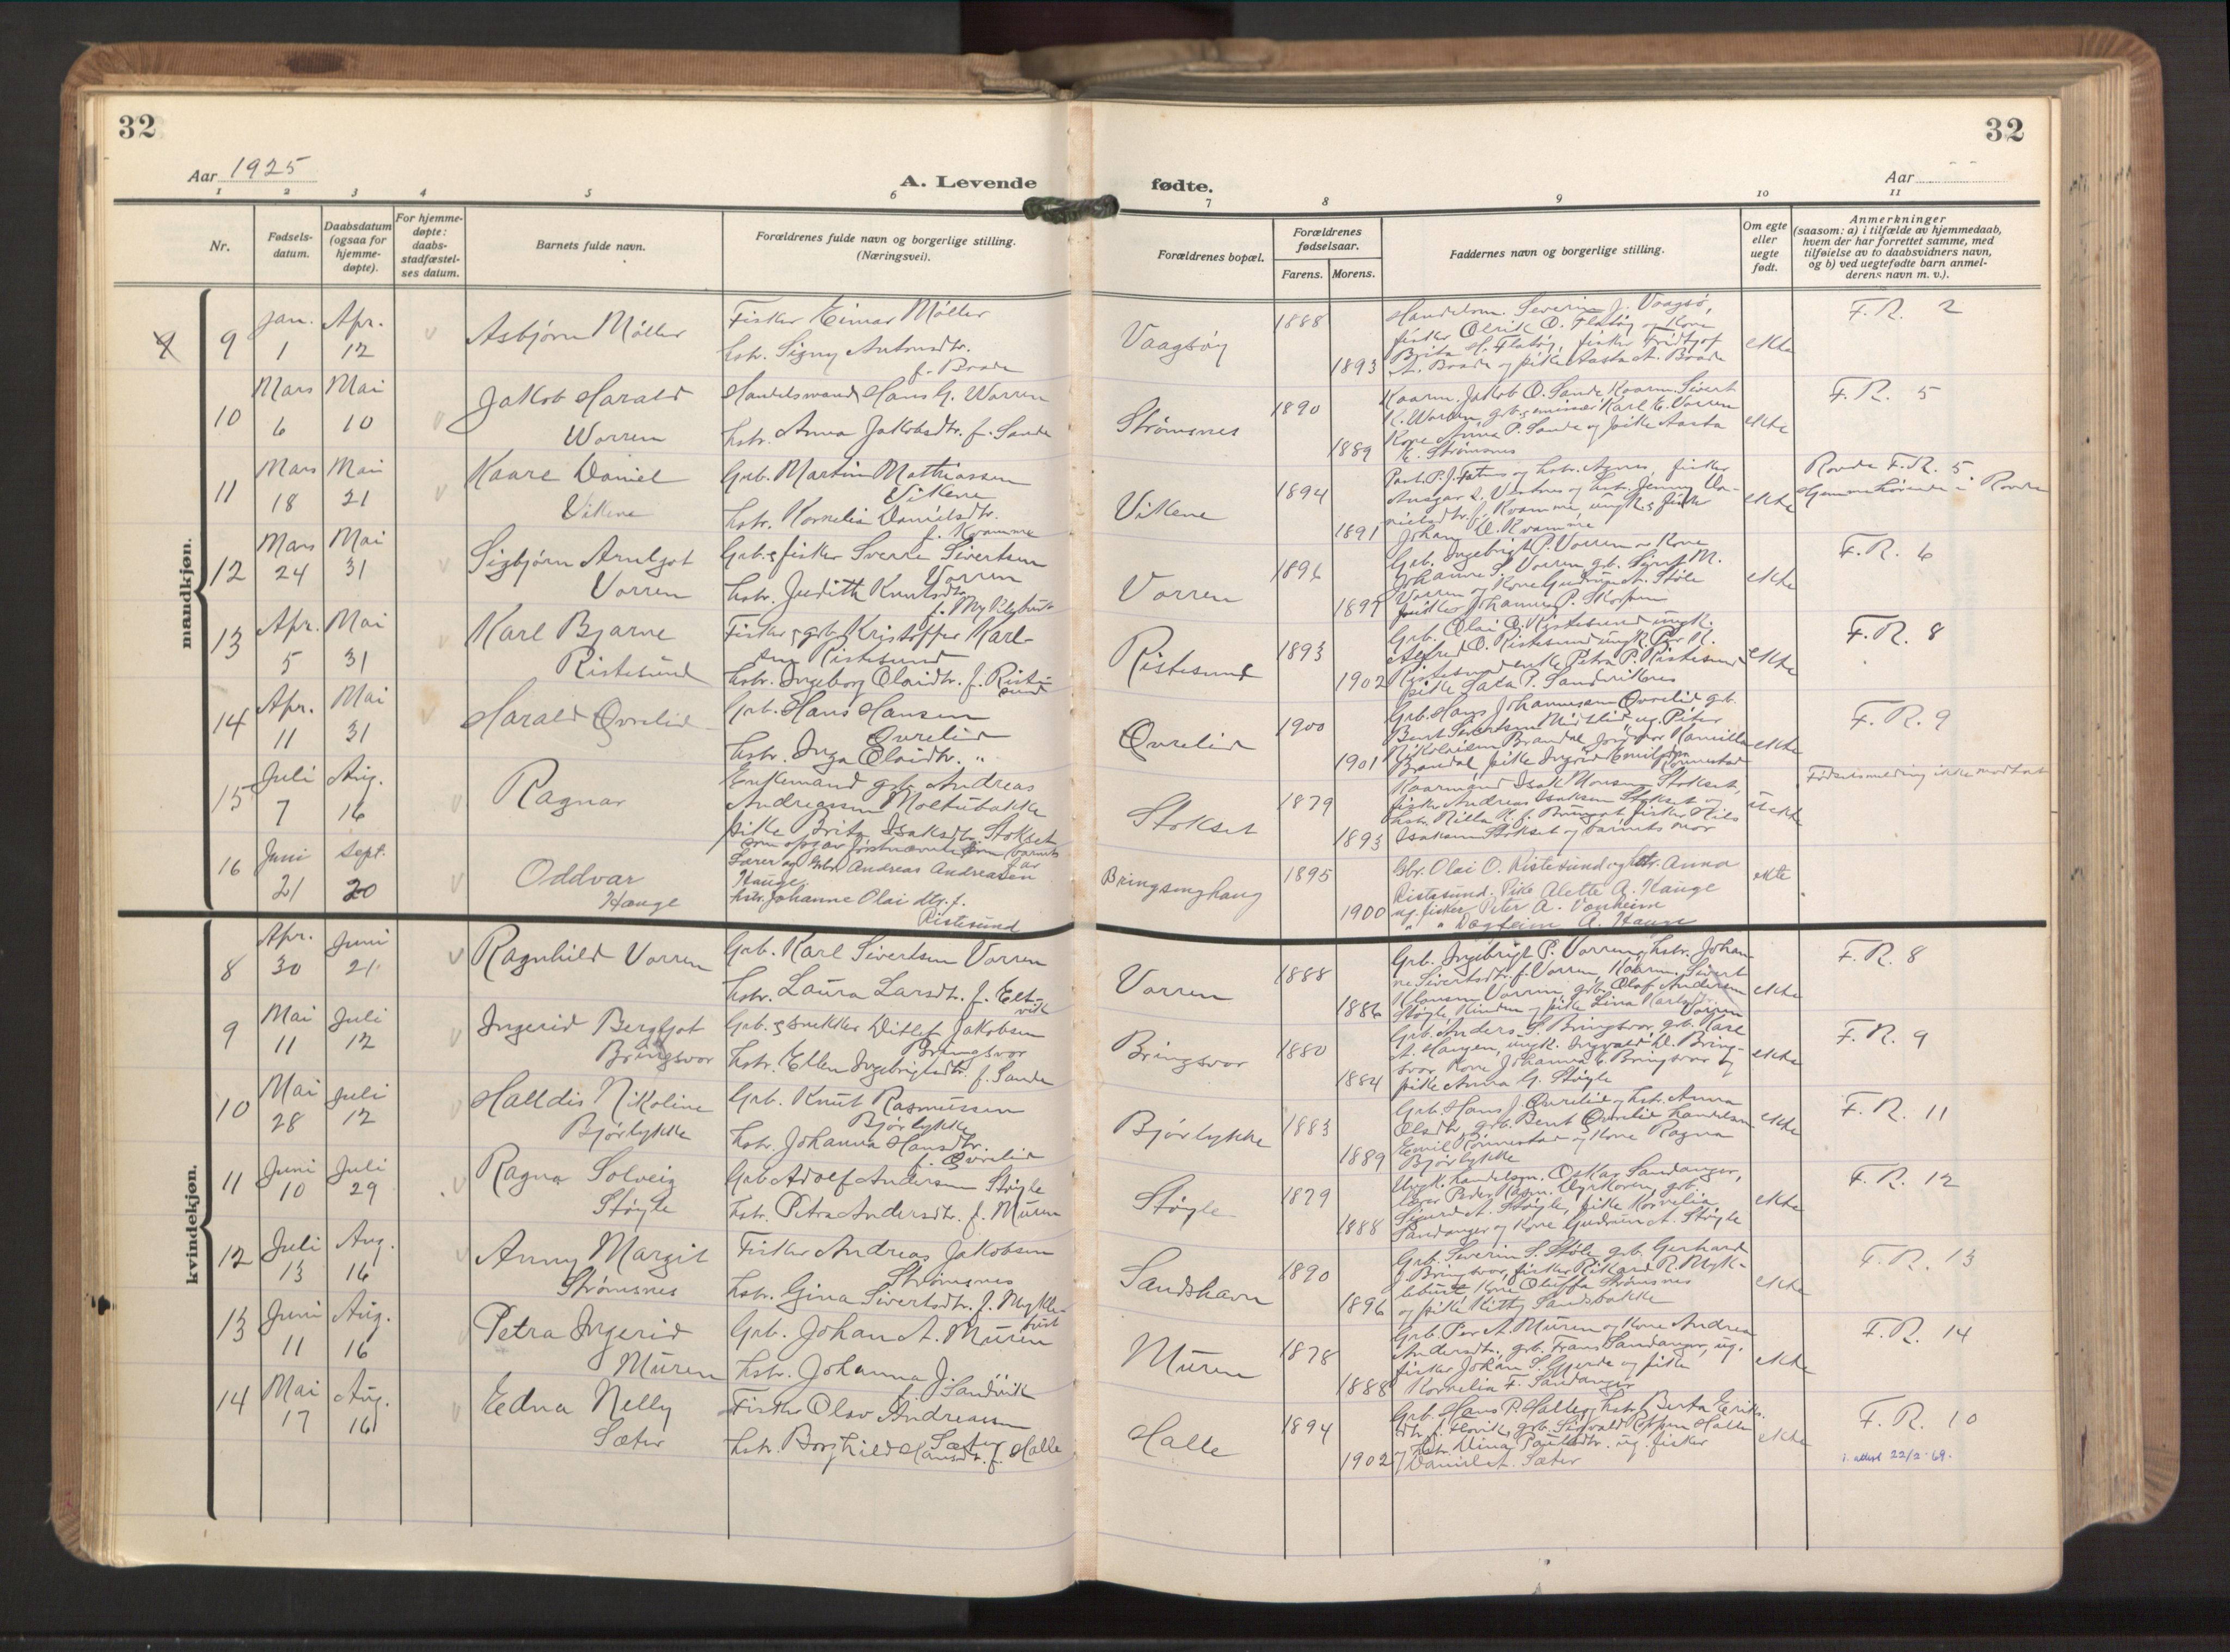 32
32
Aar 1925
A. Levende
fødte.
Aar
1 2 3 4 5 6
7 8 9 10 11
Nr.
Fødsels-
datum.
Daabsdatum
(ogsaa for
hjemme-
døpte).
For hjemme-
døpte:
daabs-
stadfæstel-
ses datum.
Barnets fulde navn.
Forældrenes fulde navn og borgerlige stilling.
(Næringsvei).
Forældrenes bopæl.
Forældrenes
fødselsaar.
Farens. Morens.
Faddernes navn og borgerlige stilling.
Om egte
eller
uegte
født.
Anmerkninger
(saasom: a) i tilfælde av hjemmedaab,
hvem der har forrettet samme, med
tilføielse av to daabsvidners navn,
og b) ved uegtefødte barn anmel-
derens navn m. v.).
mandkjøn.
9
Jan. 1
Apr. 12
Asbjørn Møller
Fisker Einar Møller
hstr. Signy Antonsdtr.
f. Brade
Vaagsøy
1888
1893
Handelsm. Severin J. Vaagsø,
fisker Olrik O. Flatøy og Kone
Brita H. Flatøy, fisker Fridtjof
A. Brade og pike Aasta A. Brade
ekte
F. R. 2
10
Mars 6
Mai 10
Jakob Harald
Vorren
Handelsmand Hans G. Vorren
hstr. Anna Jakobsdtr. f. Sande
Strømsnes
1890
1889
Kaarm. Jakob O. Sande, Kaarm. Sivert
K. Vorren, grb. emissær Karl E. Vorren
Kone Anna P. Sande og pike Aasta
K. Strømsnes
ekte
F. R. 5
11
Mars 18
Mai 21
Kaare Daniel
Vikene
Grb. Martin Mathiassen
Vikene
hstr. Kornelia Danielsdtr.
f. Kvamme
Vikene
1894
1891
Past. P. J. og hstr. Agnes, fisker
Ansgar L. og hstr. Jenny Da-
nielsdtr. f. Kvamme, ungk. fisker
Johan D. Kvamme
ekte
Rovde F. R. 5
Hjemmehørende i Rovde
12
Mars 24
Mai 31
Sigbjørn Arnljot
Vorren
Grb. & fisker Sverre Sivertsen
Vorren
hstr. Judith Knutsdtr.
f. Myklebust
Vorren
1896
1897
Grb. Ingebrigt P. Vorren og Kone
Johanne S. Vorren grb. Sivert M.
Vorren og Kone Gudrun A. Støle
fisker Johannes P. Skorpen
ekte
F. R. 6
13
Apr. 5
Mai 31
Karl Bjarne
Ristesund
Fisker & grb. Kristoffer Karl-
sen Ristesund
hstr. Ingeborg Olaidtr. f. Riste-
sund
Ristesund
1893
1902
Grb. Olai O. Ristesund ungk.
Alfred O. Ristesund ungk. Per K.
Ristesund enke Petra P. Ristesund
pike Lada P. Sandviknes
ekte
F. R. 8
14
Apr. 11
Mai 31
Harald Øvrelid
Grb. Hans Hansen
Øvrelid
hstr. Inga Olaidtr. "
Øvrelid
1900
1901
Grb. Hans Johannessen Øvrelid grb.
Bent Sivertsen Midtlid ug. Peter
Nikolaisen Brandal jordmor Kamilla
Brandal, pike Ingrid Emilsen
Rønnestad
ekte
F. R. 9
15
Juli 7
Aug. 16
Ragnar
Enkemand grb. Andreas
Andreassen Moltubakke
pike Brita Isaksdtr. Stokset
som opgav førstnævnte som barnets
far
Stokset
1879
1893
Kaarmand Isak Monsen Stokset,
fisker Andreas Isaksen Stokset og
hstr. Rilla K. f. Bringsvor, fisker Nils
Isaksen Stokset og barnets mor
uekte
Fødselsmelding ikke modtat
16
Juni 21
Sept. 20
Oddvar
Hauge
Lærer og Grbr. Andreas Andreasen
Hauge
hstr. Johanne Olai dtr. f.
Ristesund
Bringsinghaug
1895
1900
Gbr. Olai O. Ristesund og hstr. Anna
Ristesund. Pike Alette A. Hauge
ug. fisker Peter A. Vonheim
" " Dagfinn A. Hauge
ekte
kvindekjøn.
8
Apr. 30
Juni 21
Ragnhild Vorren
Grb. Karl Sivertsen Vorren
hstr. Laura Larsdtr. f. Elt-
vik
Vorren
1888
1886
Grb. Ingebrigt P. Vorren og hstr. Johan-
ne Sivertsdtr. f. Vorren, Kaarm. Sivert
Klausen Vorren, grb. Olaf Andersen
Støyle Kinden og pike Lina Karlsdtr.
Vorren
ekte
F. R. 8
9
Mai 11
Juli 12
Ingerid Bergljot
Bringsvor
Grb. & snekker Ditlef Jakobsen
Bringsvor
hstr. Ellen Ingebrigtsdtr. f. Sande
Bringsvor
1880
1884
Grb. Anders S. Bringsvor, grb. Karl
A. Haugen, ungk. Ingvald D. Bring-
svor, Kone Johanna E. Bringsvor og
pike Anna G. Støyle
ekte
F. R. 9
10
Mai 28
Juli 12
Halldis Nikoline
Bjørlykke
Grb. Knut Rasmussen
Bjørlykke
hstr. Johanna Hansdtr.
f. Øvrelid
Bjørlykke
1883
1889
Grb. Hans J. Øvrelid og hstr. Anna
Olsdtr., grb. Bent Øvrelid handelsm.
Emil Rønnestad og Kone Ragna
Bjørlykke
ekte
F. R. 11
11
Juni 10
Juli 29
Ragna Solveig
Støyle
Grb. Adolf Andersen Støyle
hstr. Petra Andersdtr. f. Muren
Støyle
1879
1888
Ungk. handelsm. Oskar Sandanger,
lærer Peder Rasm. Myrkoren, grb.
Sigurd A. Støyle, pike Kornelia
Sandanger og Kone Gudrun A. Støyle
ekte
F. R. 12
12
Juli 13
Aug. 16
Anny Margit
Strømsnes
Fisker Andreas Jakobsen
Strømsnes
hstr. Gina Sivertsdtr. f. Mykle-
bust
Sandshavn
1890
1896
Grb. Severin S. Støle, grb. Gerhard
J. Bringsvor, fisker Rikard R. Myk-
lebust Kone Oluffa Strømsnes
og pike Kitty Sandsbakke
ekte
F. R. 13
13
Juni 11
Aug. 16
Petra Ingerid
Muren
Grb. Johan A. Muren
hstr. Johanna J.
f. Sandvik
Muren
1878
1888
Grb. Per A. Muren og Kone Andrea
Andersdtr., grb. Frans Sandanger, ug.
fisker Johan S. Gjerde og pike
Kornelia F. Sandanger
ekte
F. R. 14
14
Mai 17
Aug. 16
Edna Nelly
Sæter
Fisker Olav Andreassen
Sæter
hstr. Borghild Hansdtr. f. Halle
Halle
1894
1902
Grb. Hans P. Halle og hstr. Berta Eriks-
dtr. f. Hovik, grb. Sigvald Halle
og hstr. Dina Paulsdtr. ug. fisker
Daniel A. Sæter
ekte
F. R. 10
i. attest 22/2-69.